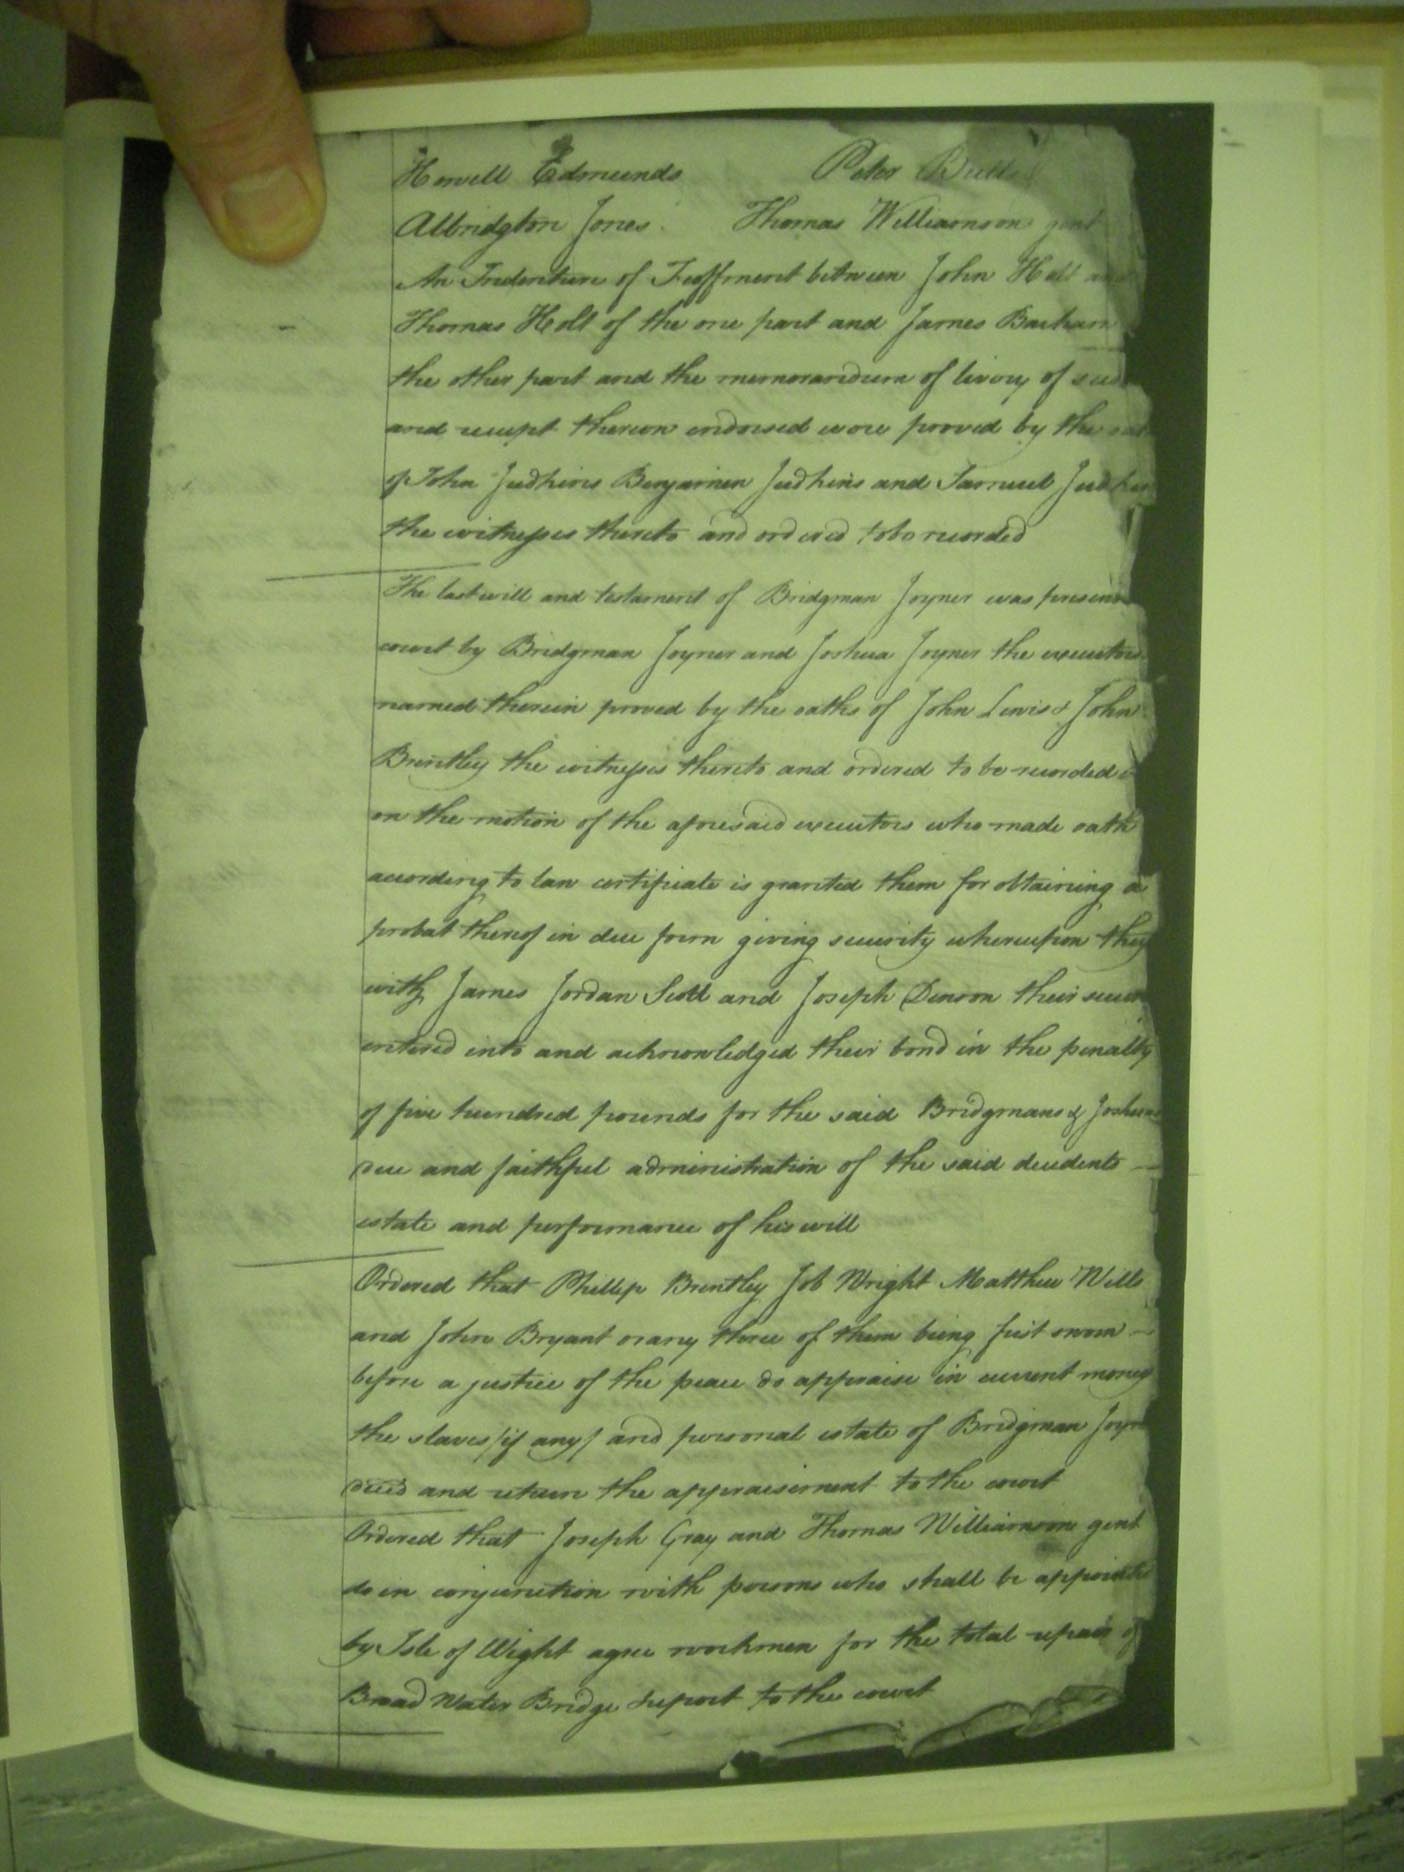 Howell Edmunds Peter Butt
Albridgton Jones Thomas Williamson gent
An Indenture of Feoffment between John Holt and
Thomas Holt of the one part and James Barham
the other part and the memorandum of livery of
and receipt thereon endorsed were prooved by the
of John Judkins Benjamin Judkins and Samuel Judkin
the witnesses thereto and ordered to be recorded
The last will and testament of Bridgman Joyner was
court by Bridgman Joyner and Joshua Joyner the executors
named therein proved by the oaths of John Lewis & John
Brintley the witnesses thereto and ordered to be recorded &
on the motion of the aforesaid executors who made oath
according to law certificate is granted them for obtaining a
probat thereof in due form giving security whereupon they
with James Jordan Scott and Joseph Denson their
entered into and acknowledged their bond in the penalty
of five hundred pounds for the said Bridgmans & Joshuas
due and faithful administration of the said decedents —
estate and performance of his will
Ordered that Phillip Brintley Job Wright Matthew Wills
and John Bryant or any three of them being first sworn —
before a justice of the peace do appraise in current money
the slaves /if any/ and personal estate of Bridgman Joyn
decd and return the appraisement to the court
Ordered that Joseph Gray and Thomas Williamson gent
do in conjunction with persons who shall be appointed
by Isle of Wight agree workmen for the total repair of
Broad Water Bridge & report to the court